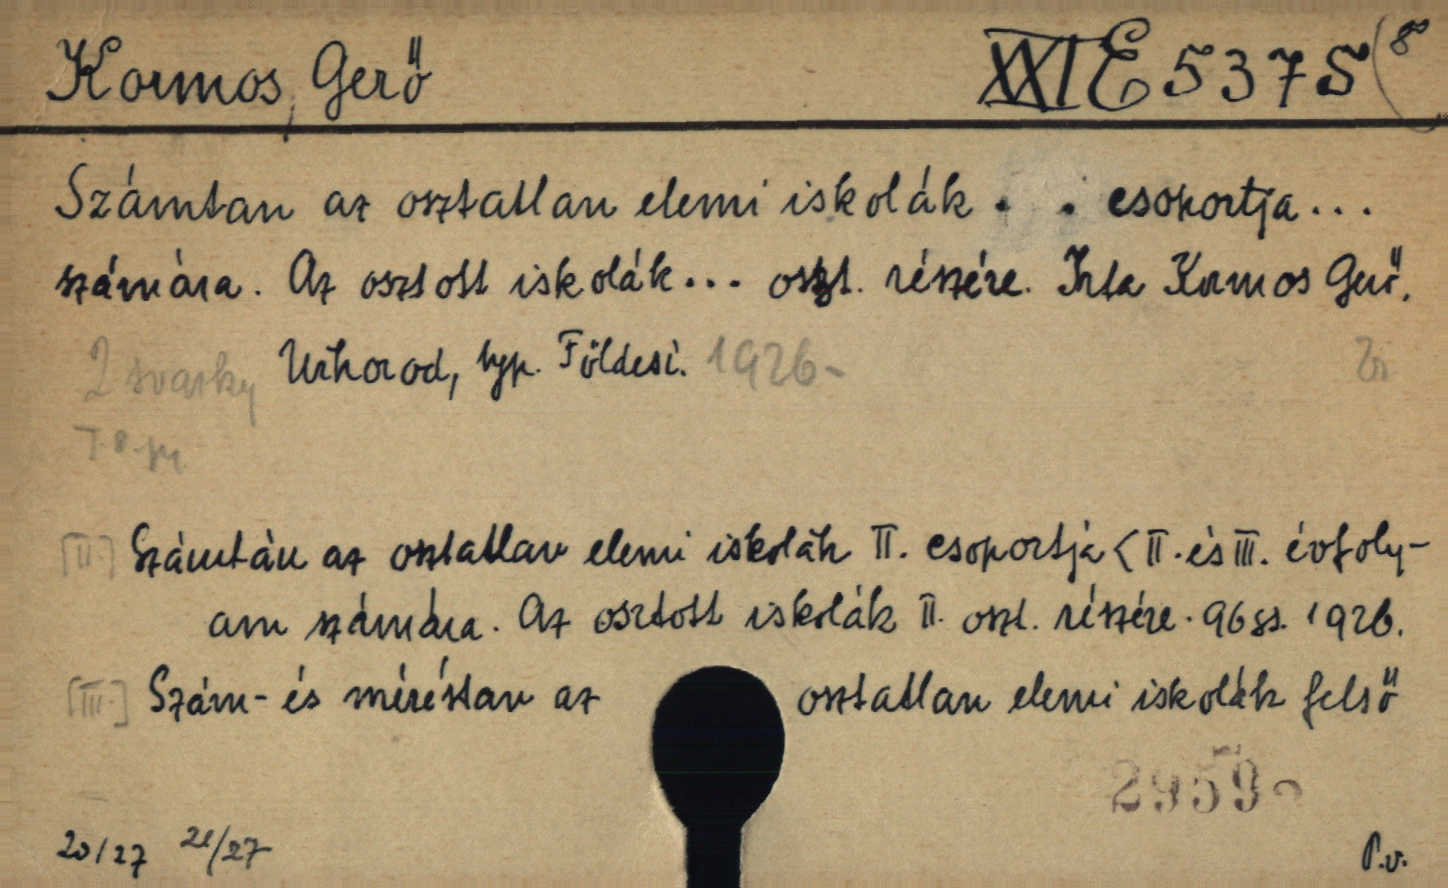 Kormos, Gerő
XXI E 5375 (8°
Számtan az osztatlan elemi iskolák . . csoportja...
számára. Az osztott iskolák... oszt. részére. Irta Kormos Gerő.
2 svazky Užhorod, typ. Földesi. 1926-
[II.] Számtán az osztatlan elemi iskolák II. csoportja < II. és III. évfoly-
am számára. Az osztott iskolák II. oszt. részére. 96 s. 1926.
[III.] Szám- és méréstan az osztatlan elemi iskolák felső
2959
20/27 21/27
P.v.